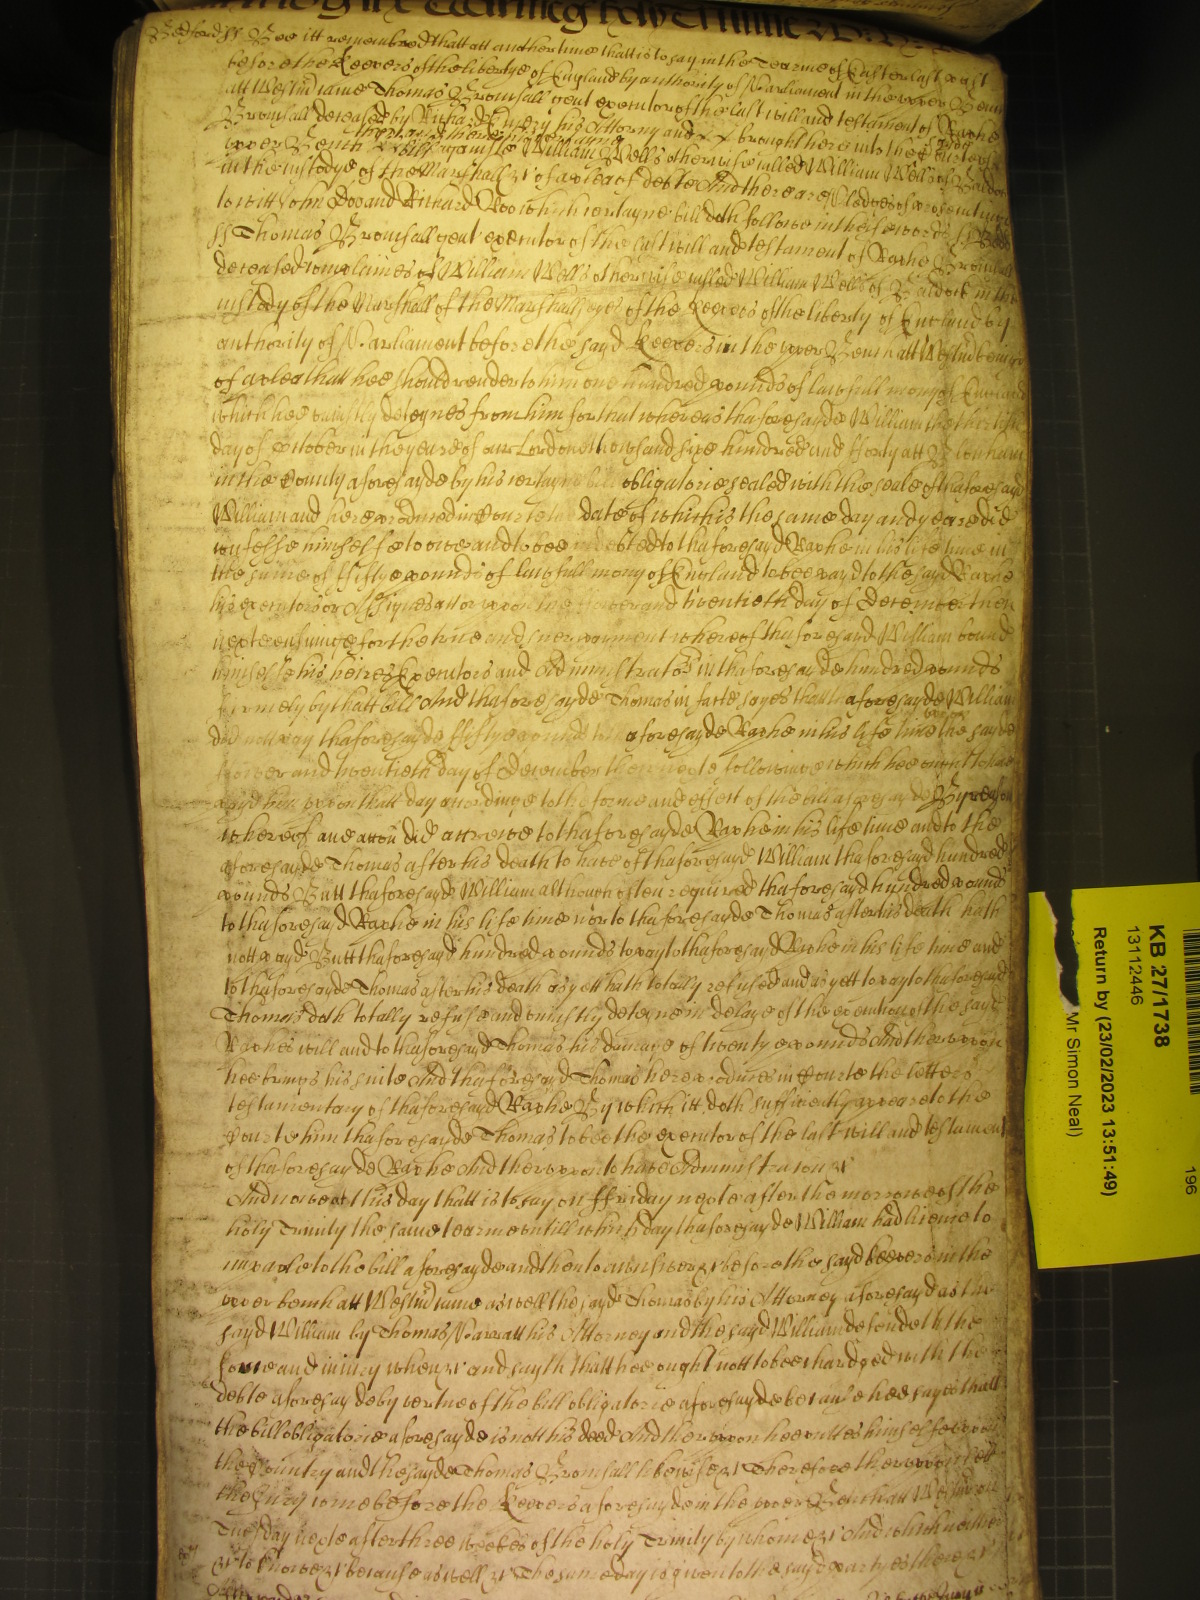 Bedford ss Bee itt remembred thatt att another time thatt is to say in the Tearme of Easter last past
before the Keepers of the liberty of England by authority of Parliament in the upper Bench
att Westm came Thomas Bromsall gent executor of the last will and testament of Raphe
Bromsall deceased by Richard Emery his Attorny and brought here into the Court of
upper Bench then and there his certayne bill against William Wells otherwise called William Wells of Baldock
in the custodye of the Marshall &c of a plea of debte And there are Pledges of prosecution
to witt John Doo and Richard Roo which certayne bill doth followe in these words ss Bedd
ss Thomas Bromsall gent executor of the last will and testament of Raphe Bromsall
deceased complaines of William Wells otherwise called William Wells of Baldock in the
custody of the Marshall of the Marshallsyes of the Keepers of the liberty of England by
authority of Parliament before the sayd Keepers in the upper Bench att Westminster
of a plea thatt hee should render to him one hundred pounds of lawfull mony of England
which hee uniustly deteynes from him for that whereas thaforesayde William the thirtith
day of October in the yeare of our Lord one thowsand sixe hundred and fforty att
in the County aforesayde by his certayne bill obligatorie sealed with the seale of thaforesayd
William and here produced in Courte the date of which is the same day and yeare did
confesse himselfe to owe and to bee indebted to thaforesayd Raphe in his life time in
the summe of fifty pounds of lawfull mony of England to bee payd to the sayd Raphe
his executors or Assignes att or upon the fower and twentieth day of December then
nexte ensuinge for the true and sure payment whereof thaforesayd William bound
himselfe his heires Executors and Administrators in thaforesayde hundred pounds
firmely by thatt bill And thaforesayde Thomas in facte sayes thatt aforesayde William
did nott pay thaforesayde fifty pounds to aforesayde Raphe in his life time upon the sayde
fower and twentieth day of December then nexte followinge which hee ought to have
payd him upon thatt day accordinge to the forme and effect of the bill aforesayde By reason
whereof an accon did accrewe to thaforesayde Raphe in his life time and to the
aforesayde Thomas after his death to have of thaforesayd William thaforesayd hundred
pounds Butt thaforesayde William although often required thaforesayd hundred pounds
to thaforesayd Raphe in his life time nor to thaforesayde Thomas after his death hath
nott payd Butt thaforesayd hundred pounds to pay to thaforesayd Raphe in his life time and
to thaforesayde Thomas after his death as yett hath totally refused and as yett to pay to thaforesayd
Thomas doth totally refuse and uniustly deteyne in delaye of the execution of the sayd
Raphes will and to thaforesayd Thomas his damage of twenty pounds And thereupon
hee brings his suite And thaforesayd Thomas here produces in Courte the letters
testamentary of thaforesayd Raphe By which itt doth sufficiently appeare to the
Courte him thaforesayde Thomas to bee the executor of the last will and testament
of thaforesayde Raphe And thereupon to have Administracon &c
And nowe att this day thatt is to say on ffriday nexte after the morrowe of the
holy Trinity the same tearme untill which day thaforesayde William had licence to
imparle to the bill aforesayde and then to answere &c before the sayd keepers in the
upper bench att Westm came as well the sayd Thomas by his Attorney aforesayd as the
sayd William by Thomas Parratt his Attorney and the sayd William defendeth the
force and iniury when &c and sayth thatt hee ought nott to bee chardged with the
debte aforesayde by vertue of the bill obligatorie aforesayde because hee sayes thatt
the bill obligatorie aforesayde is nott his deed And thereupon hee puttes himselfe upon
the Country and the sayde Thomas Bromsall likewise &c Therefore thereupon lett
the Jury come before the Keepers aforesayde in the upper Bench att Westm on
Tuesday nexte after three weekes of the holy Trinity by whome &c And which neither
&c to knowe &c because as well &c The same day is given to the sayd partyes there &c
KB 27/1738
13112446
Return by (23/02/2023 13:51:49)
Mr Simon Neal)
196